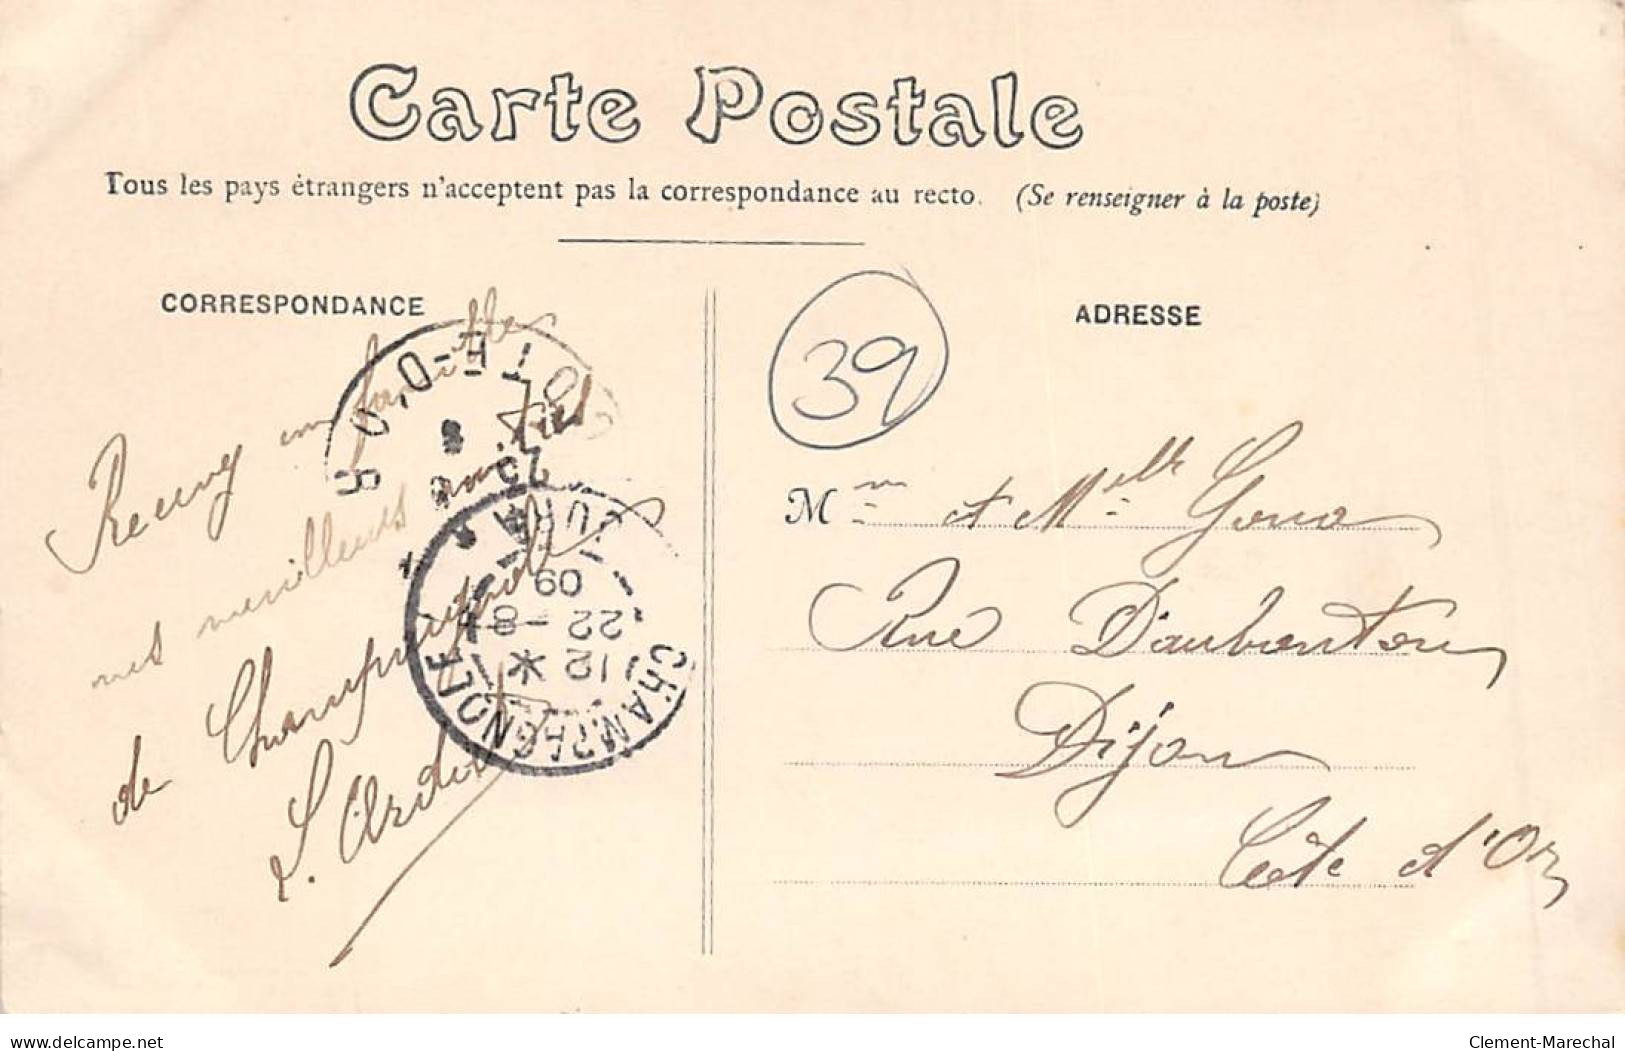 Carte Postale
Tous les pays étrangers n'acceptent pas la correspondance au recto. (Se renseigner à la poste)
CORRESPONDANCE
ADRESSE
39
Recevez en famille
mes meilleurs amitiés
de Champagnole
COTE-D'OR
23 8
CHAMPAGNOLE
JURA
12 *
22-8
09
Mme et Melle
Rue Daubenton
Dijon
Côte d'Or
delcampe.net
Clement-Marechal